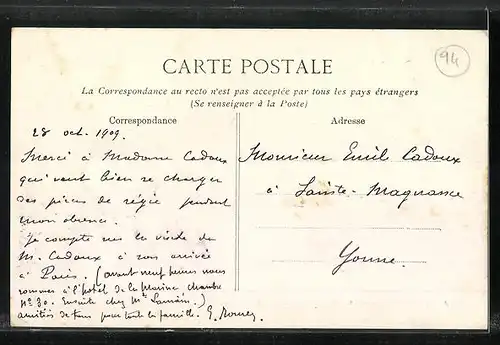 94
CARTE POSTALE
La Correspondance au recto n'est pas acceptée par tous les pays étrangers
(Se renseigner à la Poste)
Correspondance
Adresse
28 oct. 1909.
Merci à Madame Cadoux
qui veut bien se charger
des de régie pendant
mon absence.
Je compte sur la visite de
M. Cadoux à son arrivée
à Paris. (avant neuf heures nous
sommes à l'hôtel de la Marine chambre
Nº 30. Ensuite chez)
amitiés de tous pour toute la famille.
Monsieur Emile Cadoux
à Sainte-Magnance
Yonne.